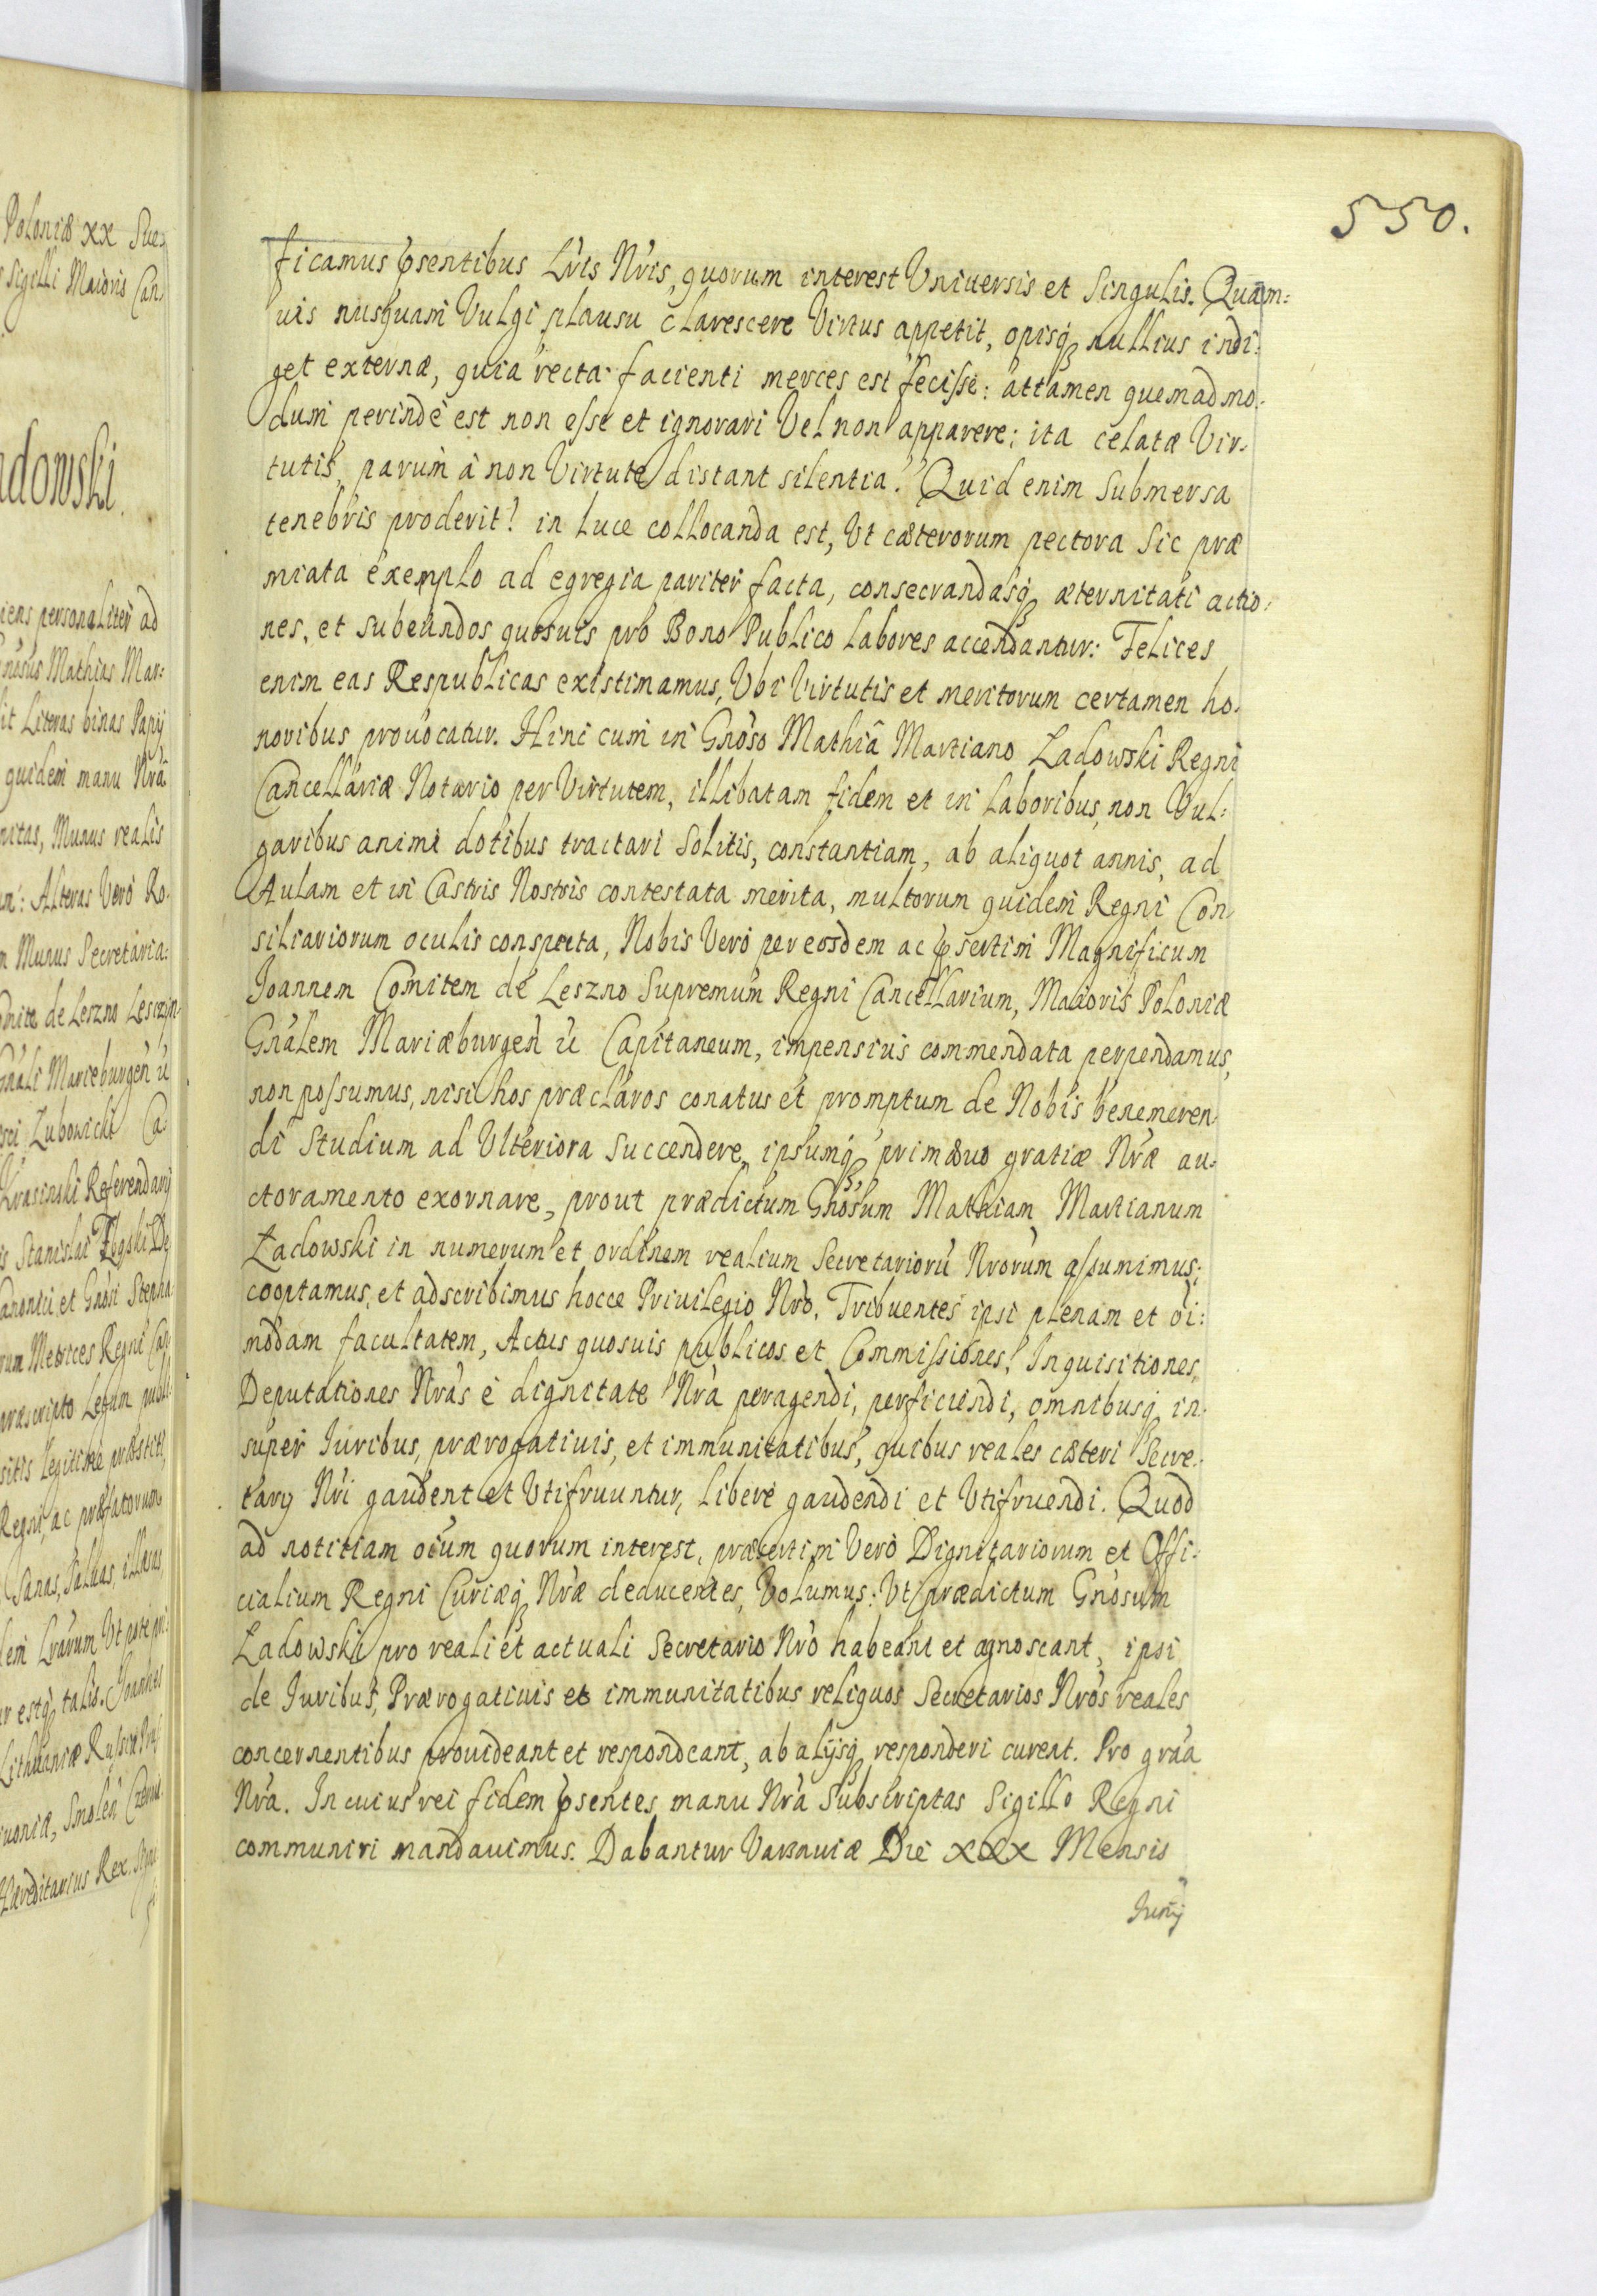 Poloniæ xx Sue:
Sigilli Maioris Can
adowski.
personaliter ad
Mathias Mar:
Literas binas Papÿ
quidem manu Nrâ
Munus realis
Alteras Verò Ro
Munus Secretaria:
de Leszno Leszczyn
Marieburgeñ ũ
Krasinski Referendarÿ
Stanislai
et Gnosi Stepha
Metrices Regni Can
præscripto Legum
Legitime præstiti
Regni, ac præfatorum
Sanas, Saluas, illæsas
Lrarum Ut pote
estq talis. Joannes
Lithuaniæ Russiæ Prus
Smoleñ Czerni
Hæreditarius Rex.
550.
ficamus ꝑsentibus Lris Nris, quorum interest Vniuersis et Singulis. Quam:
uis nusquam Vulgi plausu clarescere Virtus appetit, opisq nullius indi:
get externæ, quia recta facienti merces est fecisse: attamen quemadmo:
dum perindè est non esse et ignorari Vel non apparere; ita celatæ Vir:
tutis, parum â non Virtute distant silentia. Quid enim Submersa
tenebris proderit! in luce collocanda est, Vt cæterorum pectora Sic præ
miata exemplo ad egregia pariter facta, consecrandasq æternitati actio:
nes, et subeundos quosuis pro Bono Publico labores accendantur: Felices
enim eas Respublicas existimamus, Vbi Virtutis et meritorum certamen ho:
noribus prouocatur. Hinc cum in Gnoso Mathiâ Martiano Ladowski Regni
Cancellariæ Notario per Virtutem, illibatam fidem et in laboribus, non Vul:
garibus animi dotibus tractari Solitis, constantiam, ab aliquot annis, ad
Aulam et in Castris Nostris contestata merita, multorum quidem Regni Con
siliariorum oculis conspecta, Nobis Verò per eosdem ac ꝑsertim Magnificum
Joannem Comitem de Leszno Supremum Regni Cancellarium, Maioris Poloniæ
Gnalem Mariæburgeñ ũ Capitaneum, impensius commendata perpendamus,
non possumus, nisi hos præclaros conatus et promptum de Nobis benemeren:
di Studium ad Vlteriora Succendere, ipsumq primæuo gratiæ Nræ au:
ctoramento exornare, prout prædictum Gnosum Mathiam Martianum
Ladowski in numerum et ordinem realium Secretariorũ Nrorum assumimus,
cooptamus, et adscribimus hocce Priuilegio Nro. Tribuentes ipsi plenam et oi:
modam facultatem, Actus quosuis publicos et Commissiones, Inquisitiones,
Deputationes Nras è dignitate Nra peragendi, perficiendi, omnibusq in:
super Iuribus, prærogatiuis, et immunitatibus, quibus reales cæteri Secre:
tarÿ Nri gaudent et Vtifruuntur, liberè gaudendi et Vtifruendi. Quod
ad notitiam oium quorum interest, præsertim Verò Dignitariorum et Offi:
cialium Regni Curiæq Nræ deducentes, Volumus: Vt prædictum Gnosum
Ladowski pro reali et actuali Secretario Nro habeant et agnoscant, ipsi
de Iuribus, Prærogatiuis et immunitatibus reliquos Secretarios Nros reales
concernentibus prouideant et respondeant, ab alÿsq responderi curent. Pro graa
Nra. In cuius rei fidem ꝑsentes manu Nra Subscriptas Sigillo Regni
communiri mandauimus. Dabantur Varsauiæ Die xxx Mensis
Junÿ